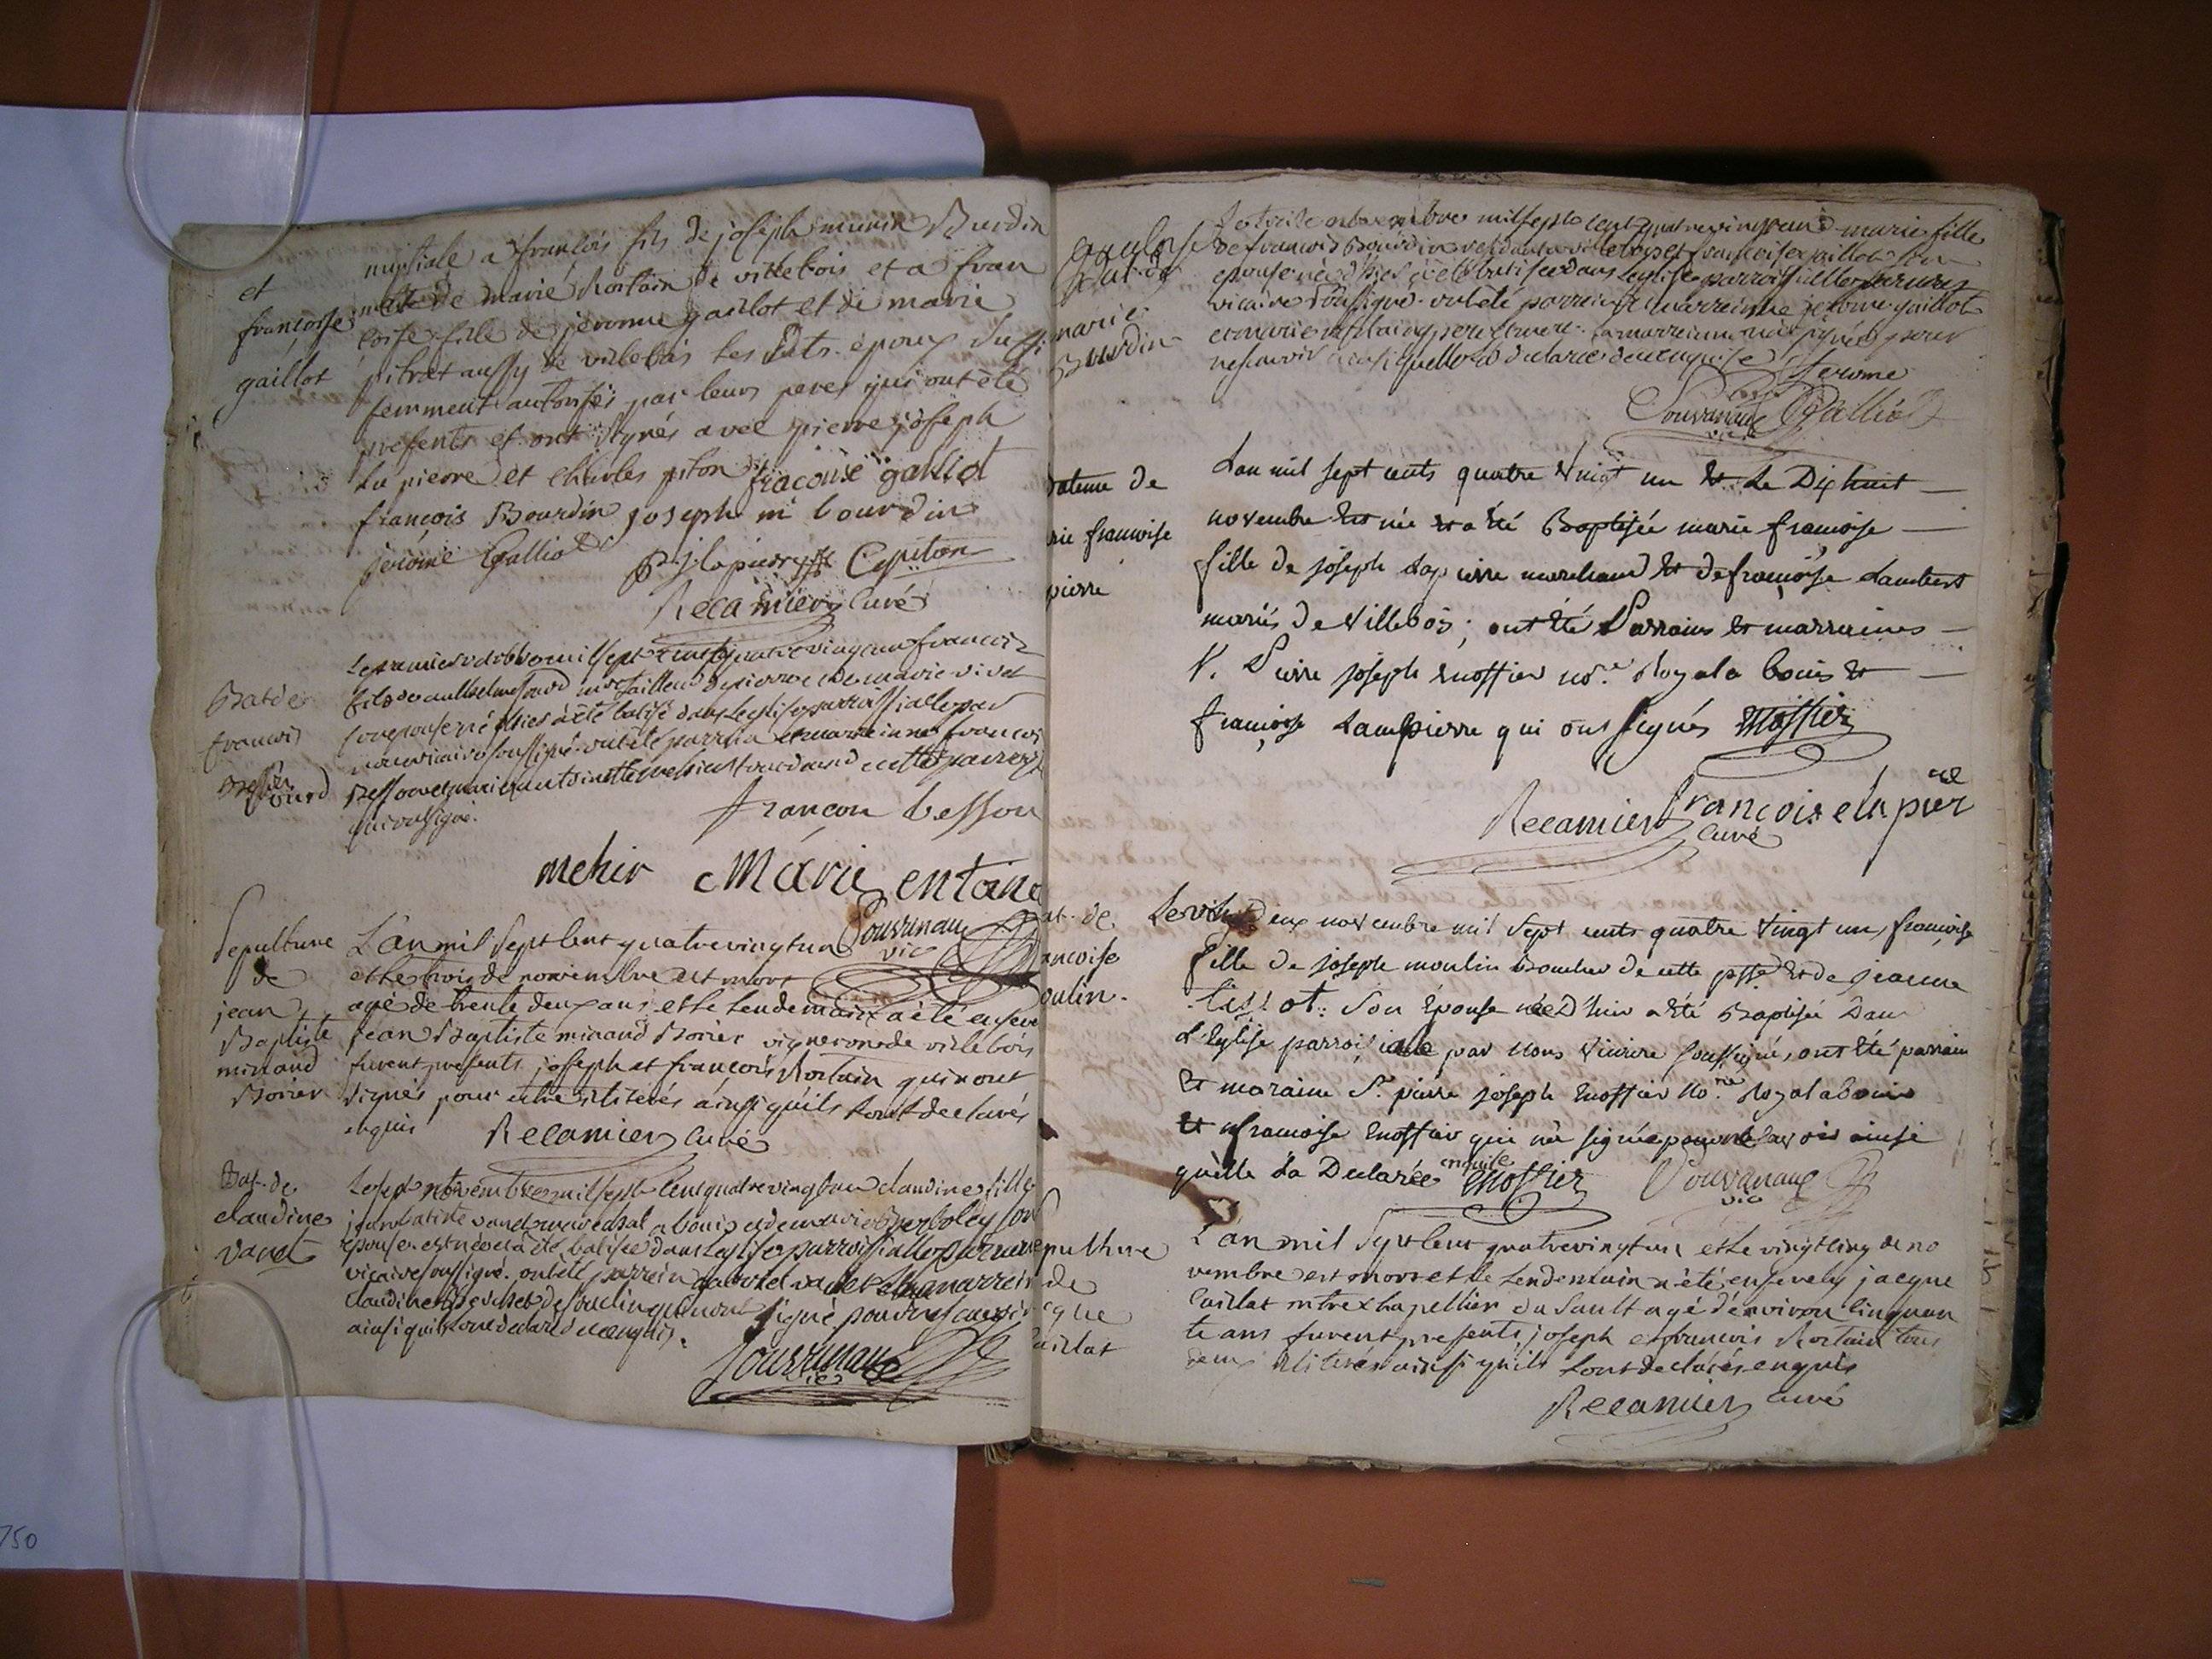 et
françoise
gaillot
nuptiale a françois fils de joseph mimin Burdin
et de marie Rortain de villebois et a fran
çoise fille de jeromme gaillot et de marie
pitrat aussy de villebois les dits époux suffi
semment autorisés par leurs peres qui ont été
presents et ont signés avec pierre joseph
La pierre et charles piton fracoise galliot
françois Bourdin joseph m bourdin
jerome Galliot
p j lapierre C piton
Recamier curé
Bat de
francois
ourd
Le premier octobre mil sept cent quatre vingt un francois
fils de anthelme
son epouse né hier a été batisé dans l'eglise parroissialle par
nous vicaire soussigné ont été parrain et marreinne francois
Besson et marie antoinette
qui ont signé.
françon besson
mehir Marie entoine
Souvanau
vic
Sepulture
de
jean
Baptiste
minand
Borier
L'an mil sept cent quatrevingt un
et le trois de novembre est mort
agé de trente deux ans et le lendemain a été enseve
jean Baptiste minand Borier vigneron de villebois
furent presents joseph et françois Rortain qui n'ont
signés pour être illiterés ainsi qu'ils l'ont declarés
enquis
Recamier curé
Bat. de
claudine
vanet
Le sept novembre mil sept cent quatre vingt un claudine fille
jean batiste vanet marechal a bouis et de marie son
epouse est née et a été batisée dans l'eglise parroissialle par nous
vicaire soussigné. ont été parrein et marrein
claudine qui n'ont signé pour ne scavoir
ainsi qu'ils l'ont declaré de ce enquis.
Souvanau
vic
Bat. de
marie
Bourdin
novembre mil sept cent quatre vingt un marie fille
de francois Bourdin villebois et francoise gaillot son
epouse née hier a été batisée dans l'eglise parroissialle par nous
vicaire soussigné. ont été parrein et marreinne jerome gaillot
et marie la marreinne n'a signé pour
ne scavoir ainsi quelle l'a declaré de ce enquise
Jerome
Galliot
Souvanau
vic
bateme de
rie francoise
pierre
L'an mil sept cents quatre vingt un et le dix huit
novembre est née et a été Baptisée marie francoise
fille de joseph Lapierre marchand et de françoise Lambert
mariés de villebois; ont été Parrains et marraines
S. Pierre joseph mossier no.re Royal a bouis et
françoise Lampierre qui ont signés Mossier
Recamier curé
francoise la pier
re
at. de
ancoise
oulin.
Le vingt deux novembre mil sept cents quatre vingt un, françoise
fille de joseph moulin Boucher de cette psse et de jeanne
tissot son épouse née D'hier a été Baptisée Dans
L'Eglise parroissiale par nous vicaire soussigné, ont été parrain
et maraine S.r pierre joseph mossier no.re Royal a bouis
et françoise mossier qui n'a signée pour ne savoir ainsi
quelle La Declarée enquise Mossier Souvanau
vic
epulture
de
cque
aislat
L'an mil sept cent quatrevingt un et le vingt cinq de no
vembre est mort et le lendemain a été ensevely jacque
Caislat mtre chapellier du Sault agé d'environ cinquan
te ans furent presents joseph et francois Rortain tous
deux illiterés ainsi qu'ils l'ont declarés enquis
Recamier curé
750